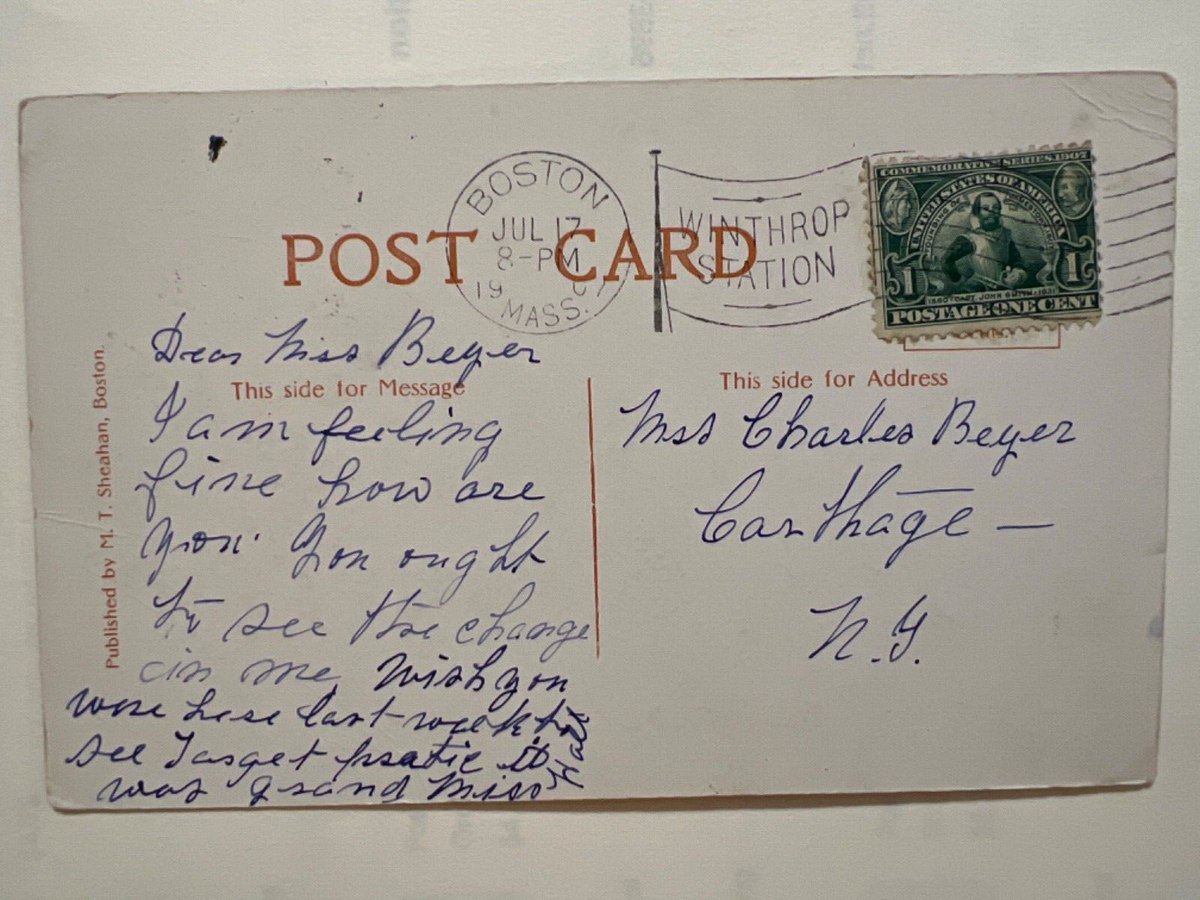 BOSTON
JUL 17
8-PM
1907
MASS.
WINTHROP
STATION
COMMEMORATIVE SERIES 1907
UNITED STATES OF AMERICA
FOUNDING OF JAMESTOWN
1580 CAPT. JOHN SMITH 1631
1 1
POSTAGE ONE CENT
POST CARD
This side for Message
This side for Address
Published by M. T. Sheahan, Boston.
Dear Miss Beyer
I am feeling
fine how are
you. You ought
to see the change
in me, Wish you
were here last week to
see Target pratic it
was grand Miss
Hall
Mrs Charles Beyer
Carthage —
N.Y.